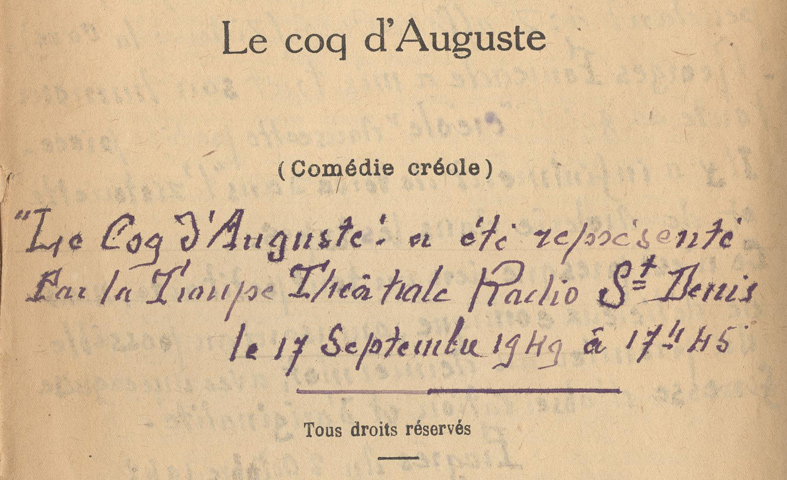 Le coq d'Auguste
(Comédie créole)
"Le Coq d'Auguste" a été représenté
Par la Troupe Théâtrale Radio St Denis
le 17 Septembre 1949 à 17H45
Tous droits réservés